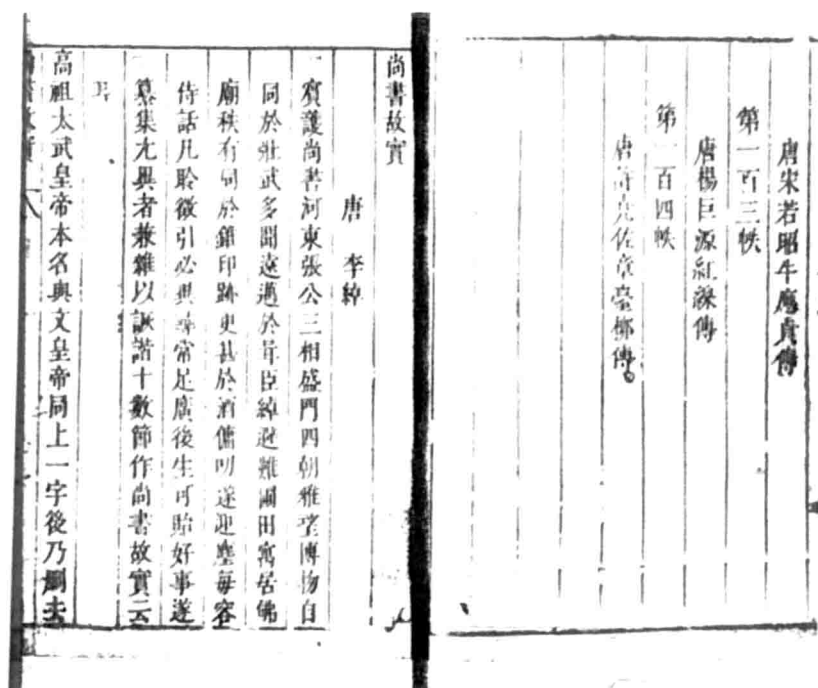 唐宋若昭牛應貞傳
第一百三帙
唐楊巨源紅線傳
第一百四帙
唐許堯佐章臺柳傳
尚書故實
唐 李綽
賓護尚書河東張公三相盛門四朝雅望博物自
同於壯武多聞遠邁於胥臣綽避難圃田寓居佛
廟秩有同於錦印跡更甚於酒傭叨遂迎塵每容
侍話凡聆徵引必異尋常足廣後生可貽好事遂
纂集尤異者兼雜以詼諧十數節作尚書故實云
耳
高祖太武皇帝本名與文皇帝同上一字後乃刪去